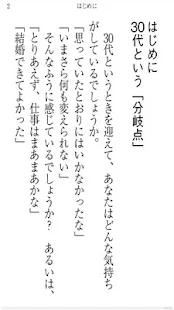 2
はじめに
はじめに
30代という「分岐点」
30代というときを迎えて、あなたはどんな気持ち
がしているでしょうか。
「思っていたとおりにはいかなかったな」
「いまさら何も変えられない」
そんなふうに感じているでしょうか? あるいは、
「とりあえず、仕事はまあまあかな」
「結婚できてよかった」